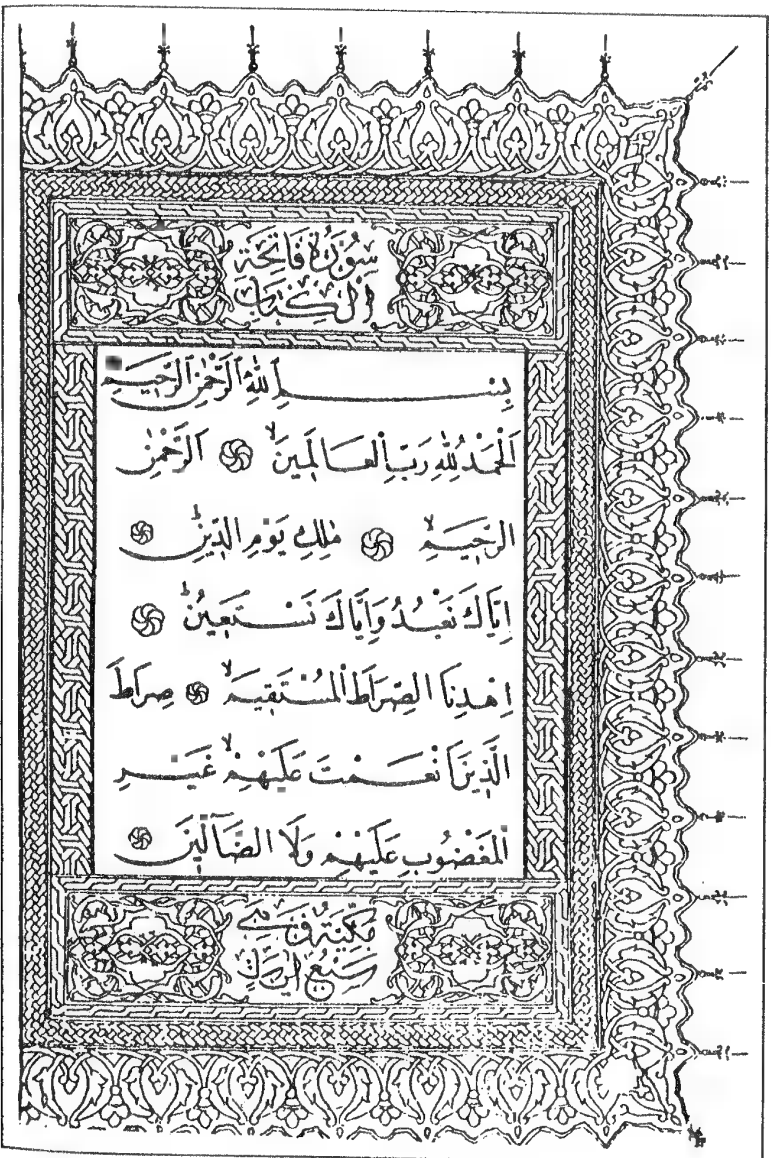 سُورَةُ فَاتِحَةِ
الْكِتَابِ
بِسْمِ ٱللهِ ٱلرَّحْمٰنِ ٱلرَّحِيمِ
اَلْحَمْدُ لِلّٰهِ رَبِّ الْعَالَمِينَۙ اَلرَّحْمٰنِ
الرَّحِيمِۙ مٰلِكِ يَوْمِ الدِّينِۜ
اِيَّاكَ نَعْبُدُ وَاِيَّاكَ نَسْتَعِينُۜ
اِهْدِنَا الصِّرَاطَ الْمُسْتَقِيمَۙ صِرَاطَ
الَّذِينَ اَنْعَمْتَ عَلَيْهِمْۙ غَيْرِ
الْمَغْضُوبِ عَلَيْهِمْ وَلَا الضَّآلِّينَ
مَكِّيَّةٌ وَهِيَ
سَبْعُ اٰيَاتٍ